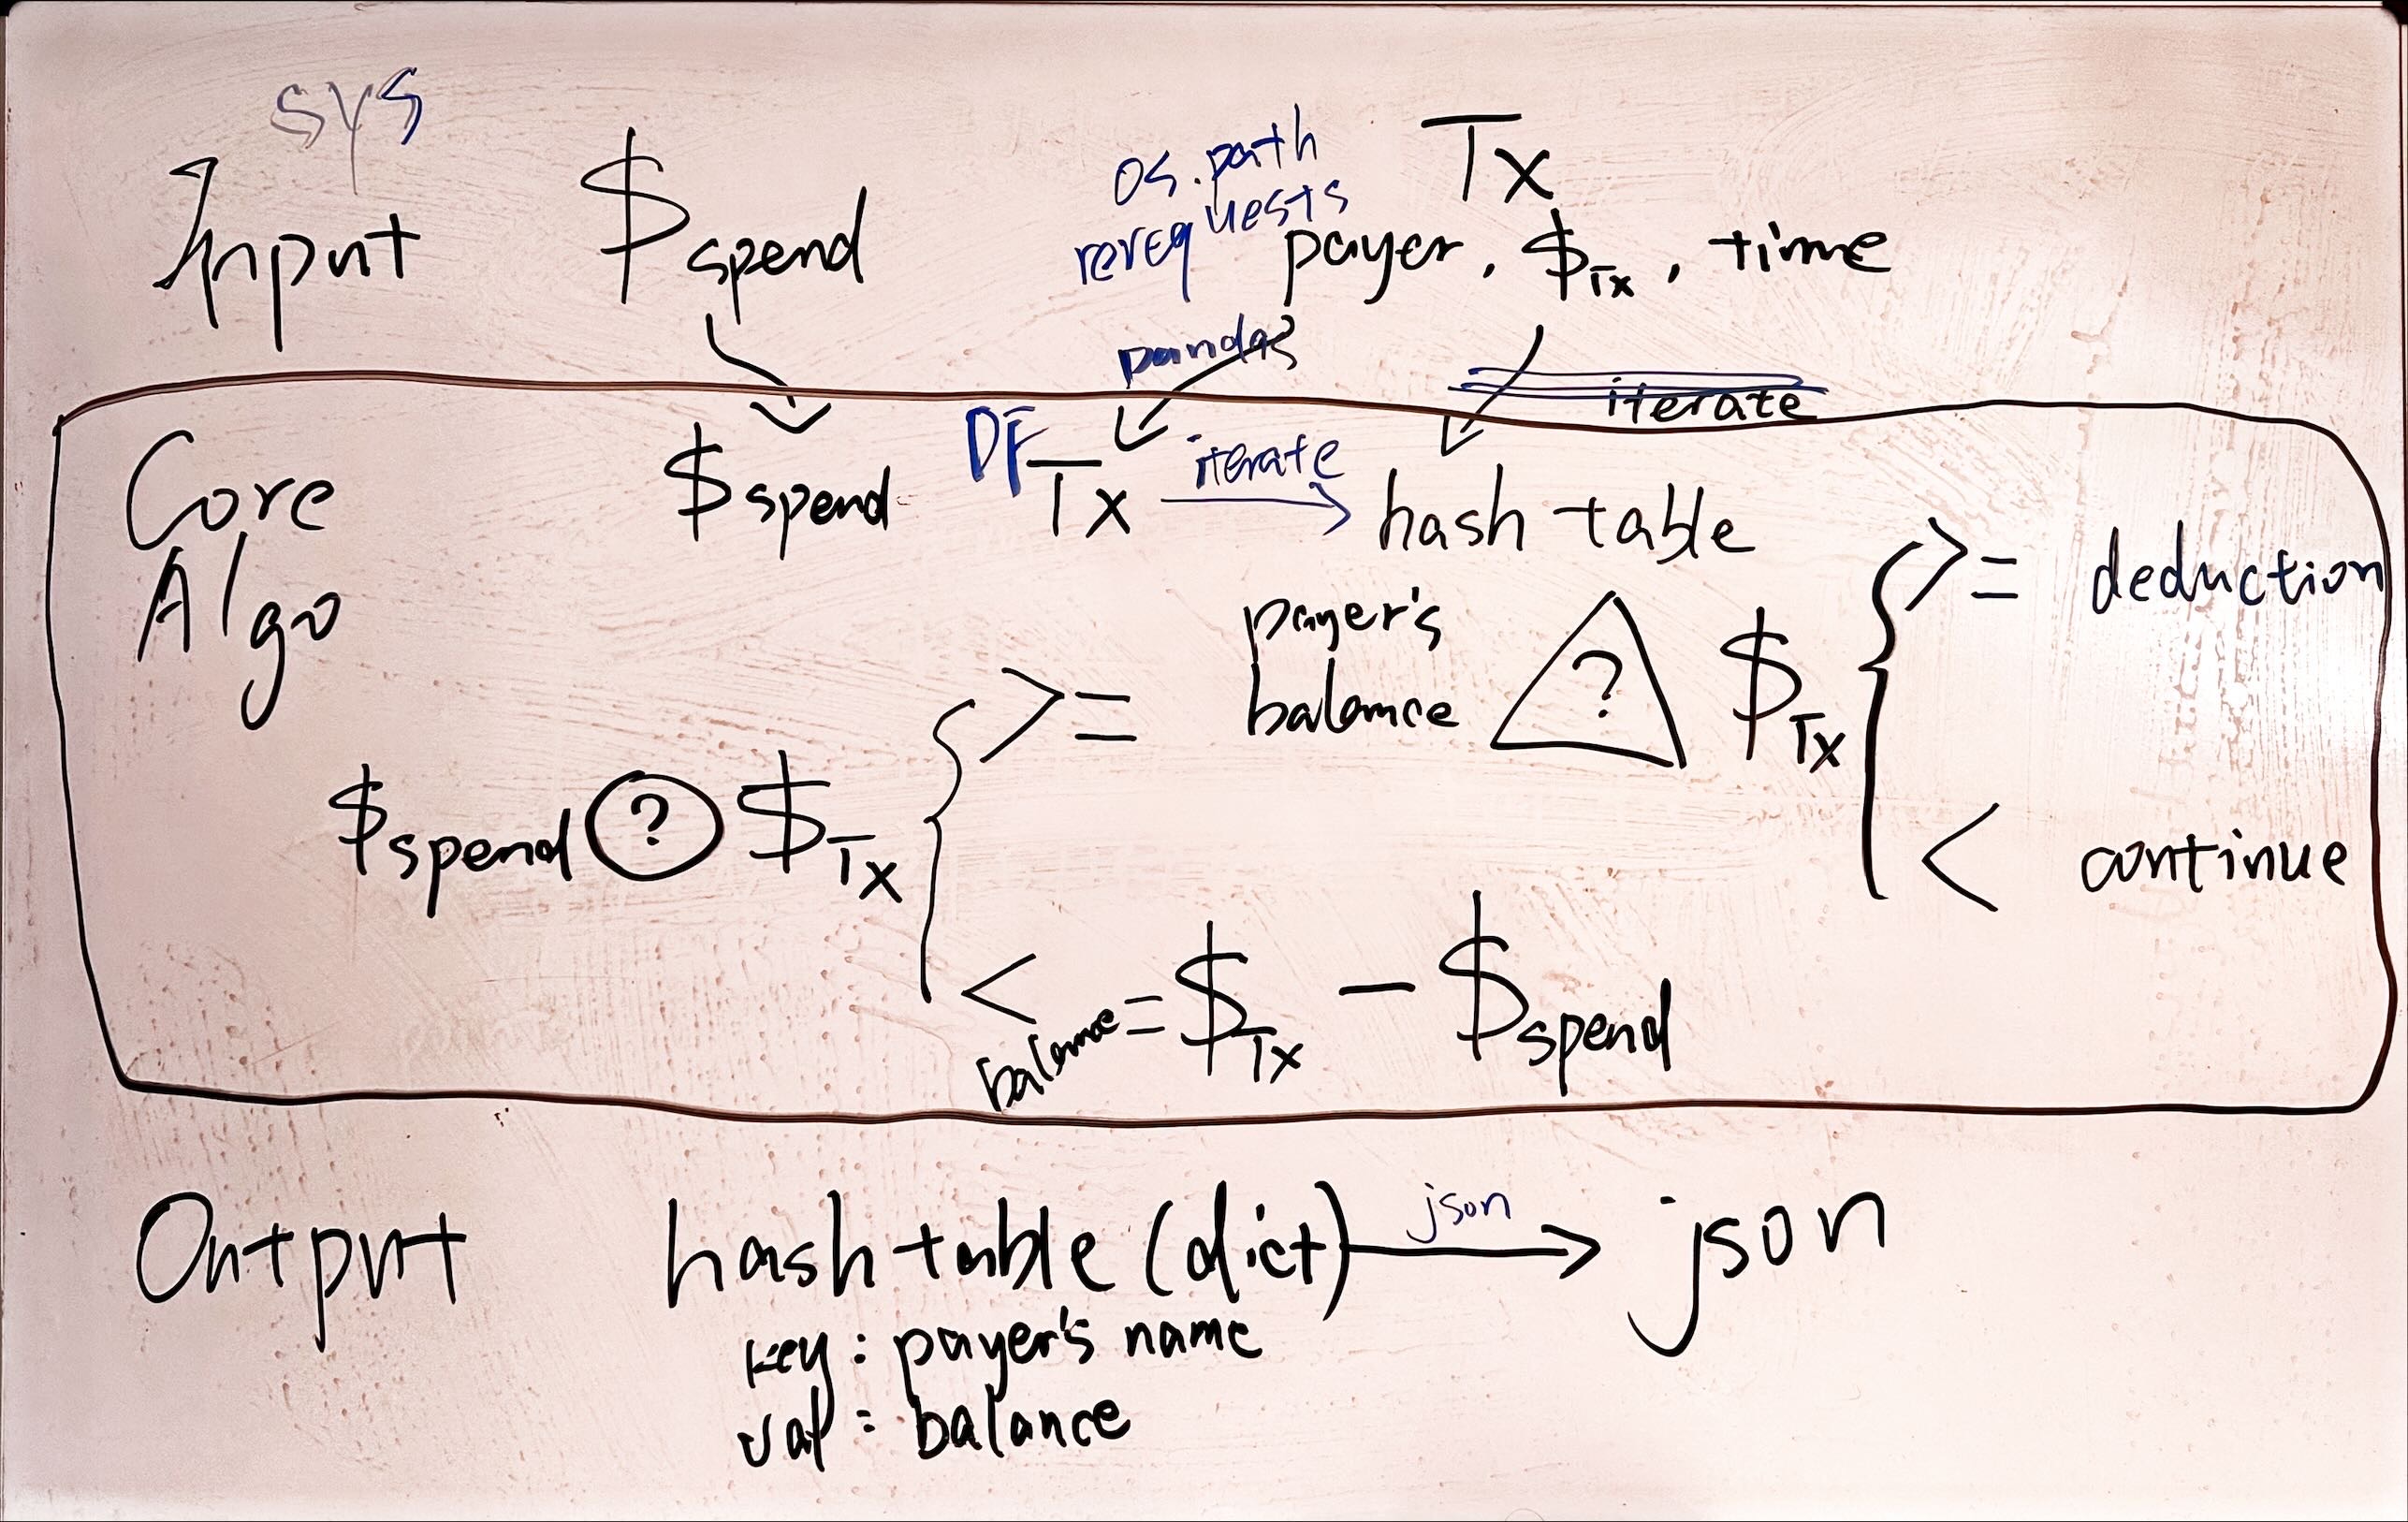 sys
Input
$spend
os.path
rerequests
Tx
payer, $Tx, time
pandas
iterate
Core
Algo
$spend
DF
Tx
iterate
hash table
payer's
balance
? $Tx
>= deduction
< continue
$spend ? $Tx
>=
<
balance = $Tx - $spend
Output
hash table (dict)
json
json
key : payer's name
val : balance